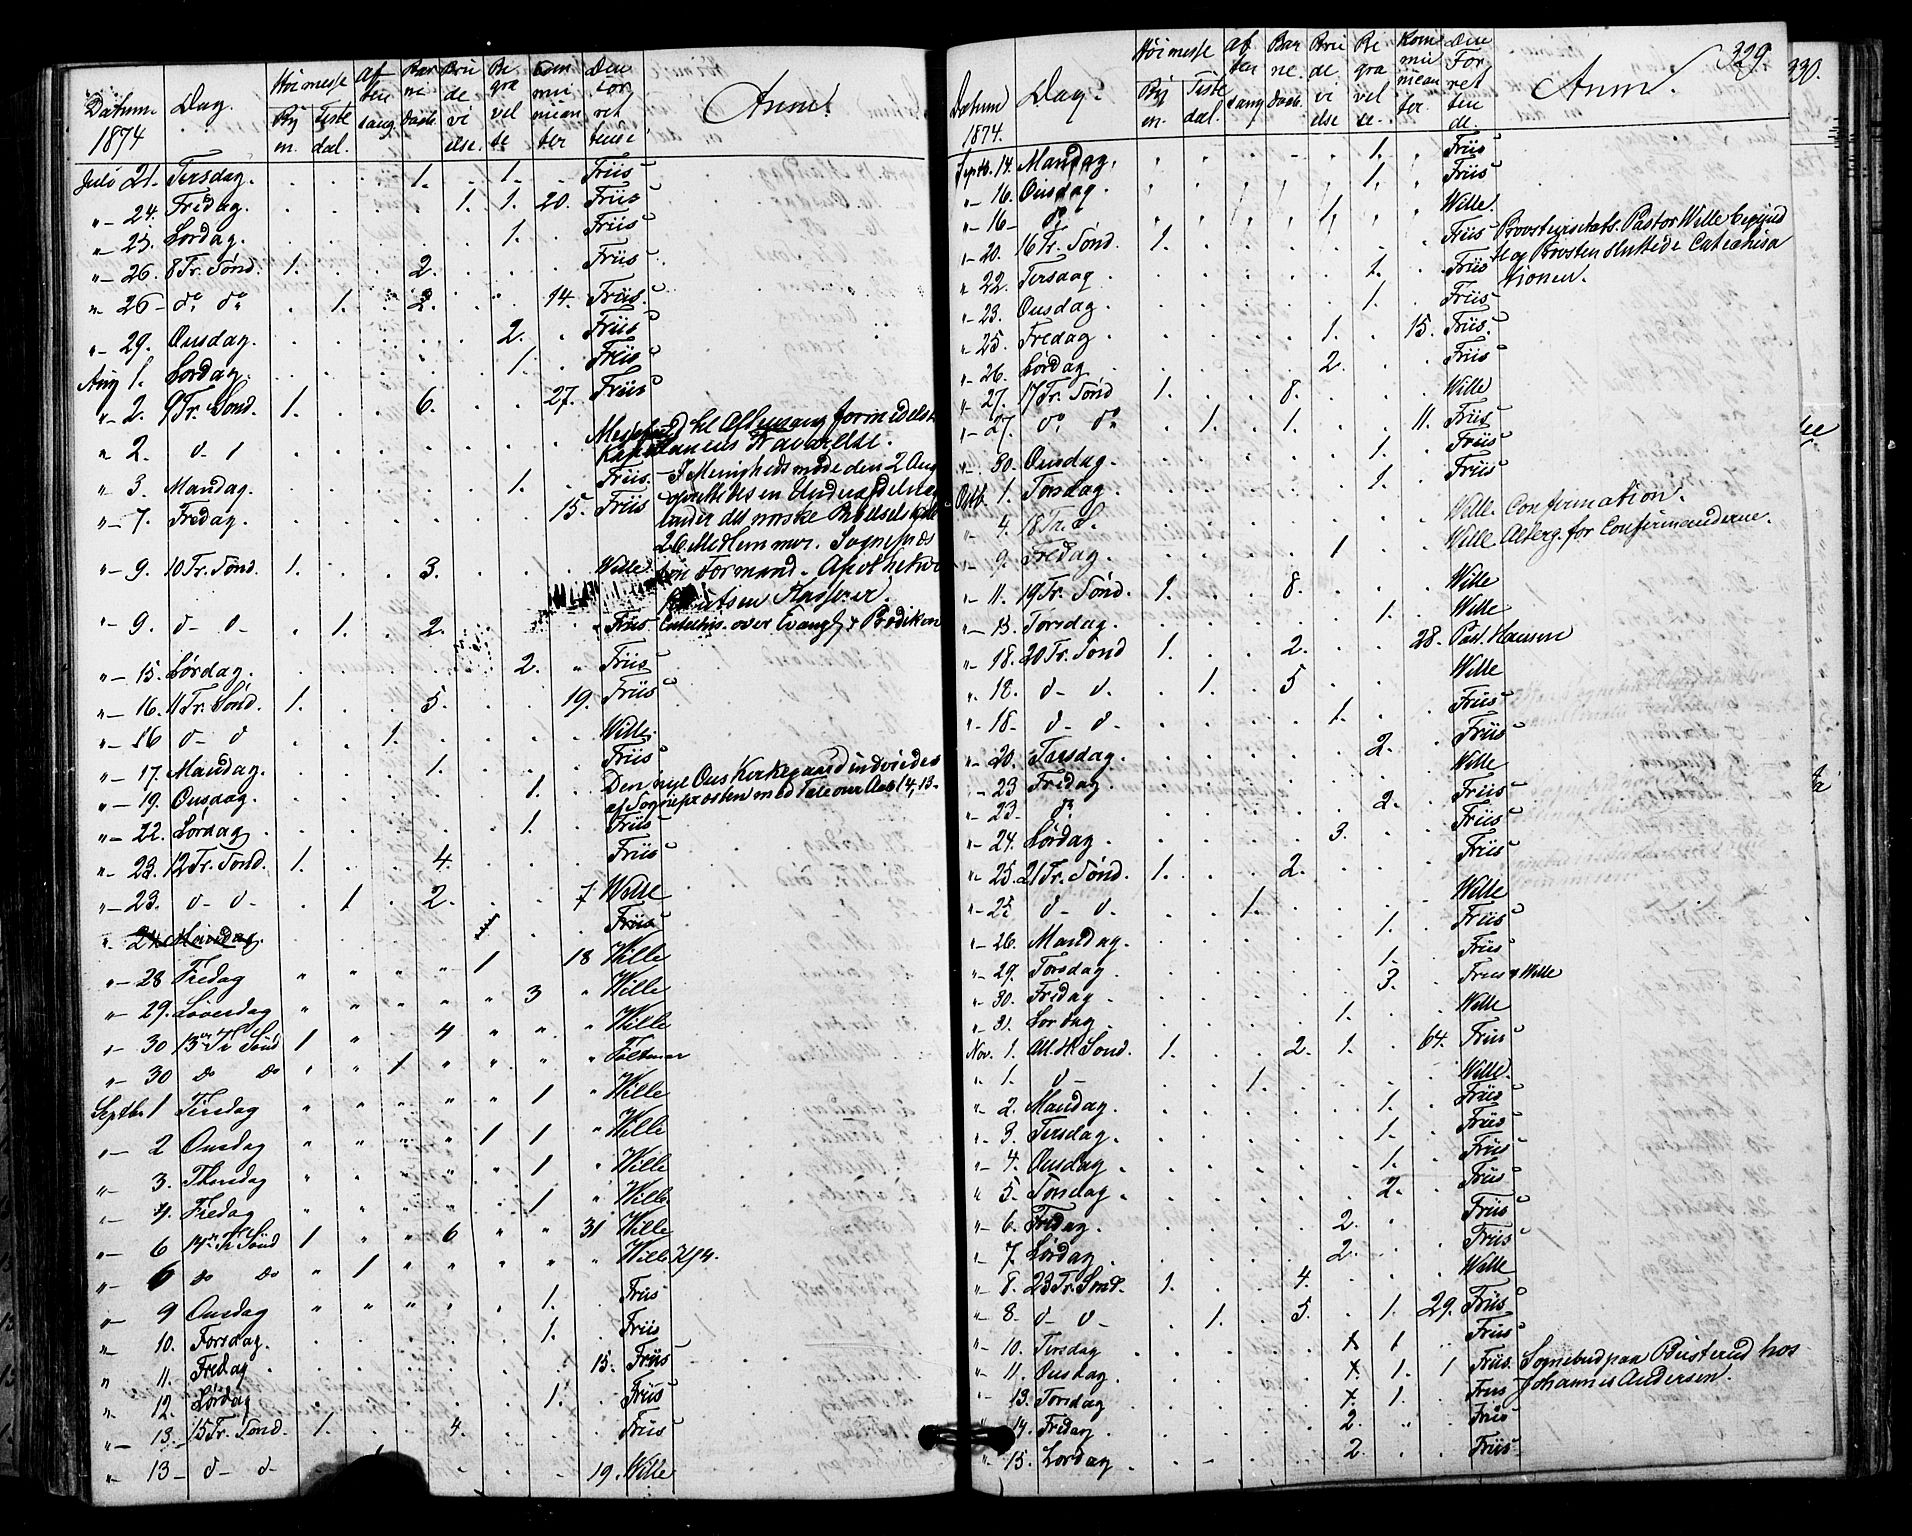 Datum 1874 Dag. Höimesse Byen. Tistedal. Aftensang. Barnedaab. Brudevielse. Begravelse. Communicanter Den Forrettende. Anm.
Juli 21. Tirsdag. . . . 1. . 1. . Friis
"- 24. Fredag. . . . . 1. 1. 20. Friis
"- 25. Lørdag. . . . . . 1. . Friis
"- 26. 8 Tr. Sønd. 1. . . 2. . . . Friis
"- 26 - do do . 1. . 2. . . 14. Friis.
"- 29. Onsdag. . . . . . 2. . Friis
Aug 1. Lørdag. . . . . . 1. . Friis
"- 2. 9 Tr. Sønd. 1. . . 6. . . 27. Friis
" 2. d - Messefald til Aftensang formedelst
Kapellanens Fraværelse.
"- 3. Mandag. . . . . . 1. . Friis. - I Menighedsmøde den 2 Aug
"- 7. Fredag. . . . . . . 15. Friis oprettedes en Underafdeling
under det norske Bibelselskab
26 Medlemmer. Sogneprest
"- 9. 10 Tr. Sønd. 1. . . 3. . . . Wille. Formand. Apotheker
Kasserer.
"- 9. d - d - . 1. . 2. . . . Friis Catechis. over Evangl. & Prædiken
"- 15. Lørdag. . . . . . 2. " Friis
"- 16. 11 Tr. Sønd. 1. . . 5. . . 19. Friis
"- 16 d - d . . 1. . . . . Wille.
"- 17. Mandag. . . . 1. . . . Friis
"- 19. Onsdag . . . . . 1. . Den nye Øens Kirkegaard indviedes
af Sogneprosten med Tale over Aab 14, 13.
"- 22. Lørdag . . . . . 1. . Friis
"- 23. 12 Tr. Sønd. 1. . . 4. . . . Friis
"- 23. d - d - . 1 . 2. . . 7 Wille
" 24 Mandag. . . . . . . . Friis
"- 28 Fredag " " " " 1 18 Wille
"- 29. Løverdag " " " " " 3 " Wille
"- 30 13de Tr Sønd 1 " " 4 " " " Wille
"- 30 do do " " 1 " " " "
Septbr. 1 Tirsdag " " " " " 1 " Wille
"- 2 Onsdag " " " " 1 1 " Wille
"- 3. Thorsdag " " " " " 1 " Wille
"- 4. Fredag " " " " " 1 " Wille
"- 6 14de Tr Sønd 1 " " 6 " " 31 Wille
"- 6 do do " 1 " " " " " Wille
"- 9 Onsdag " " " . . 1. . Friis
" 10. Torsdag. . . . . . 1. . Friis
" 11. Fredag . . . . . . 15. Friis
" 12. Lørdag . . . . . 1. . Friis
"- 13. 15 Tr. Sønd. 1. . . 4. . . . Friis
"- 13 - d - d . . . . . 19. Wille
329.
330.
Datum 1874. Dag. Höimesse Byen. Tistedal. Aftensang Barnedaab. Brudevielse Begravelse. Kommunicanter. Den Forrettende. Anm.
Septb. 14. Mandag. . . . . . 1. . Friis
"- 16. Onsdag. . . . . . 1. . Friis
"- 16 - do . . . . 1. . . Wille.
"- 20. 16 Tr. Sønd. 1. . . . . . . Friis Provstevisitats. Pastor Wille begynd
te og Provsten sluttede Catechisa
tionen.
" 22. Tirsdag . . . . . 1. . Friis
"- 23. Onsdag. . . . . . 1. . Friis
"- 25. Fredag . . . . 1. . 15. Friis.
"- 26. Lørdag . . . . 2. . . Friis
"- 27. 17 Tr. Sønd 1. . . 8. . . . Wille
"- 27. do do . 1. . 1. . . 11. Friis
"- 30. Onsdag. . . . . . 1. . Friis
Octb. 1. Torsdag. . . . . . 1. . Friis
"- 4. 18 Tr. S. Wille. Confirmation.
"- 9. Fredag. . . . . 1 . . Wille. Alterg. for Confirmanderne.
"- 11. 19 Tr. Sønd. 1. . . 8. . . . Wille
"- 15. Torsdag. . . . . . 1. . Wille
"- 18. 20 Tr. Sønd 1. . . 2. . . 28. Past. Hansen
" 18. d - d. . 1. . 5 . . . Wille
"- 18. d - d - . . . . 1. . . Friis
"- 20. Tirsdag . . . . . 2. . Friis
"- 23 Fredag . . . . . . . Wille
"- 23 - do . . . . . 2. . Friis
"- 24. Lørdag . . . . 3. . . Friis
"- 25. 21 Tr. Sønd. 1. . . 2. . . . Friis
"- 25 d - d. . . 1. . . . . Wille
"- 26. Mandag. . . . . . 1. . Friis
"- 29. Torsdag. . . . . . 1. . Friis
"- 30. Fredag. . . . . . 3. . Friis & Wille
"- 31. Lørdag. . . . . 1. . . Wille
Nov. 1. All. H. Sønd. 1. . . 2. 1. . 64. Friis
" 1. d - . . 1. . . . . Wille.
"- 2. Mandag. . . . . . 1. . Friis
"- 3. Tirsdag. . . . . . 1. . Friis
"- 4. Onsdag . . . . . 1. . Friis
" 5. Torsdag. . . . . . 2. . Friis
"- 6. Fredag. . . . . 2. . . Friis
"- 7. Lørdag. . . . . 2. . . Friis
"- 8. 23 Tr. Sønd. 1. . . 4. . . . Wille
"- 8. d - d - . 1. . 5. . 1. 29. Friis
"- 10. Tirsdag . . . . x 1 . Friis
"- 11. Onsdag. . . . . x. 1. 1 Friis. Sognebud paa Bisterud hos
"- 13. Torsdag . . . . x. 1. . Friis Johannes Andersen.
" 14. Fredag . . . . 2. " . Friis
"- 15. Lørdag . . . . 2. . . Friis